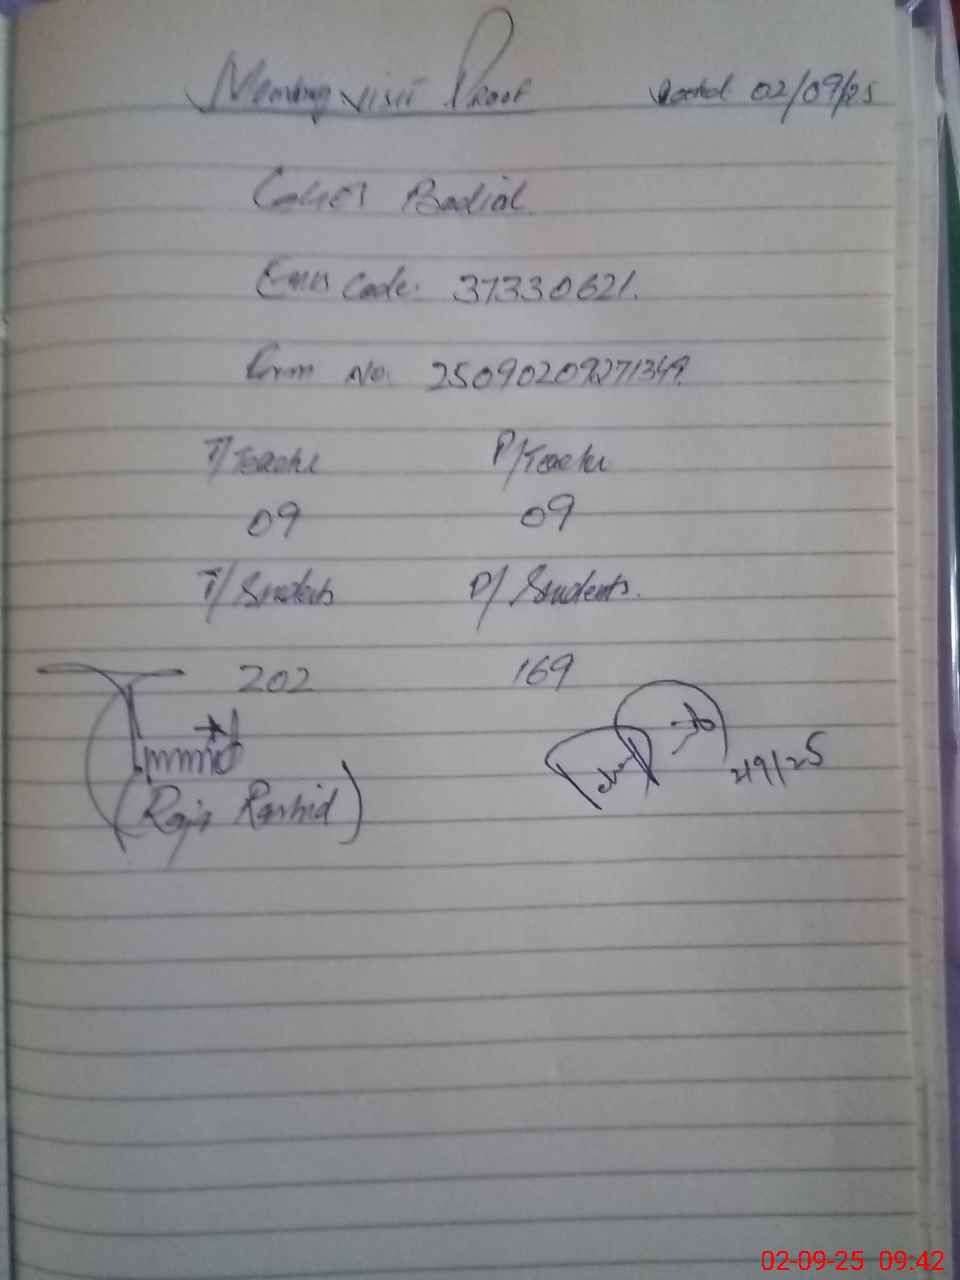 visit Proof Dated 02/09/25
Badial
Emis Code: 37330621.
No. 25090209271349
T/Teacher P/Teacher
09 09
T/Students P/Students.
202 169
(Raja Rashid)
2/9/25
02-09-25 09:42